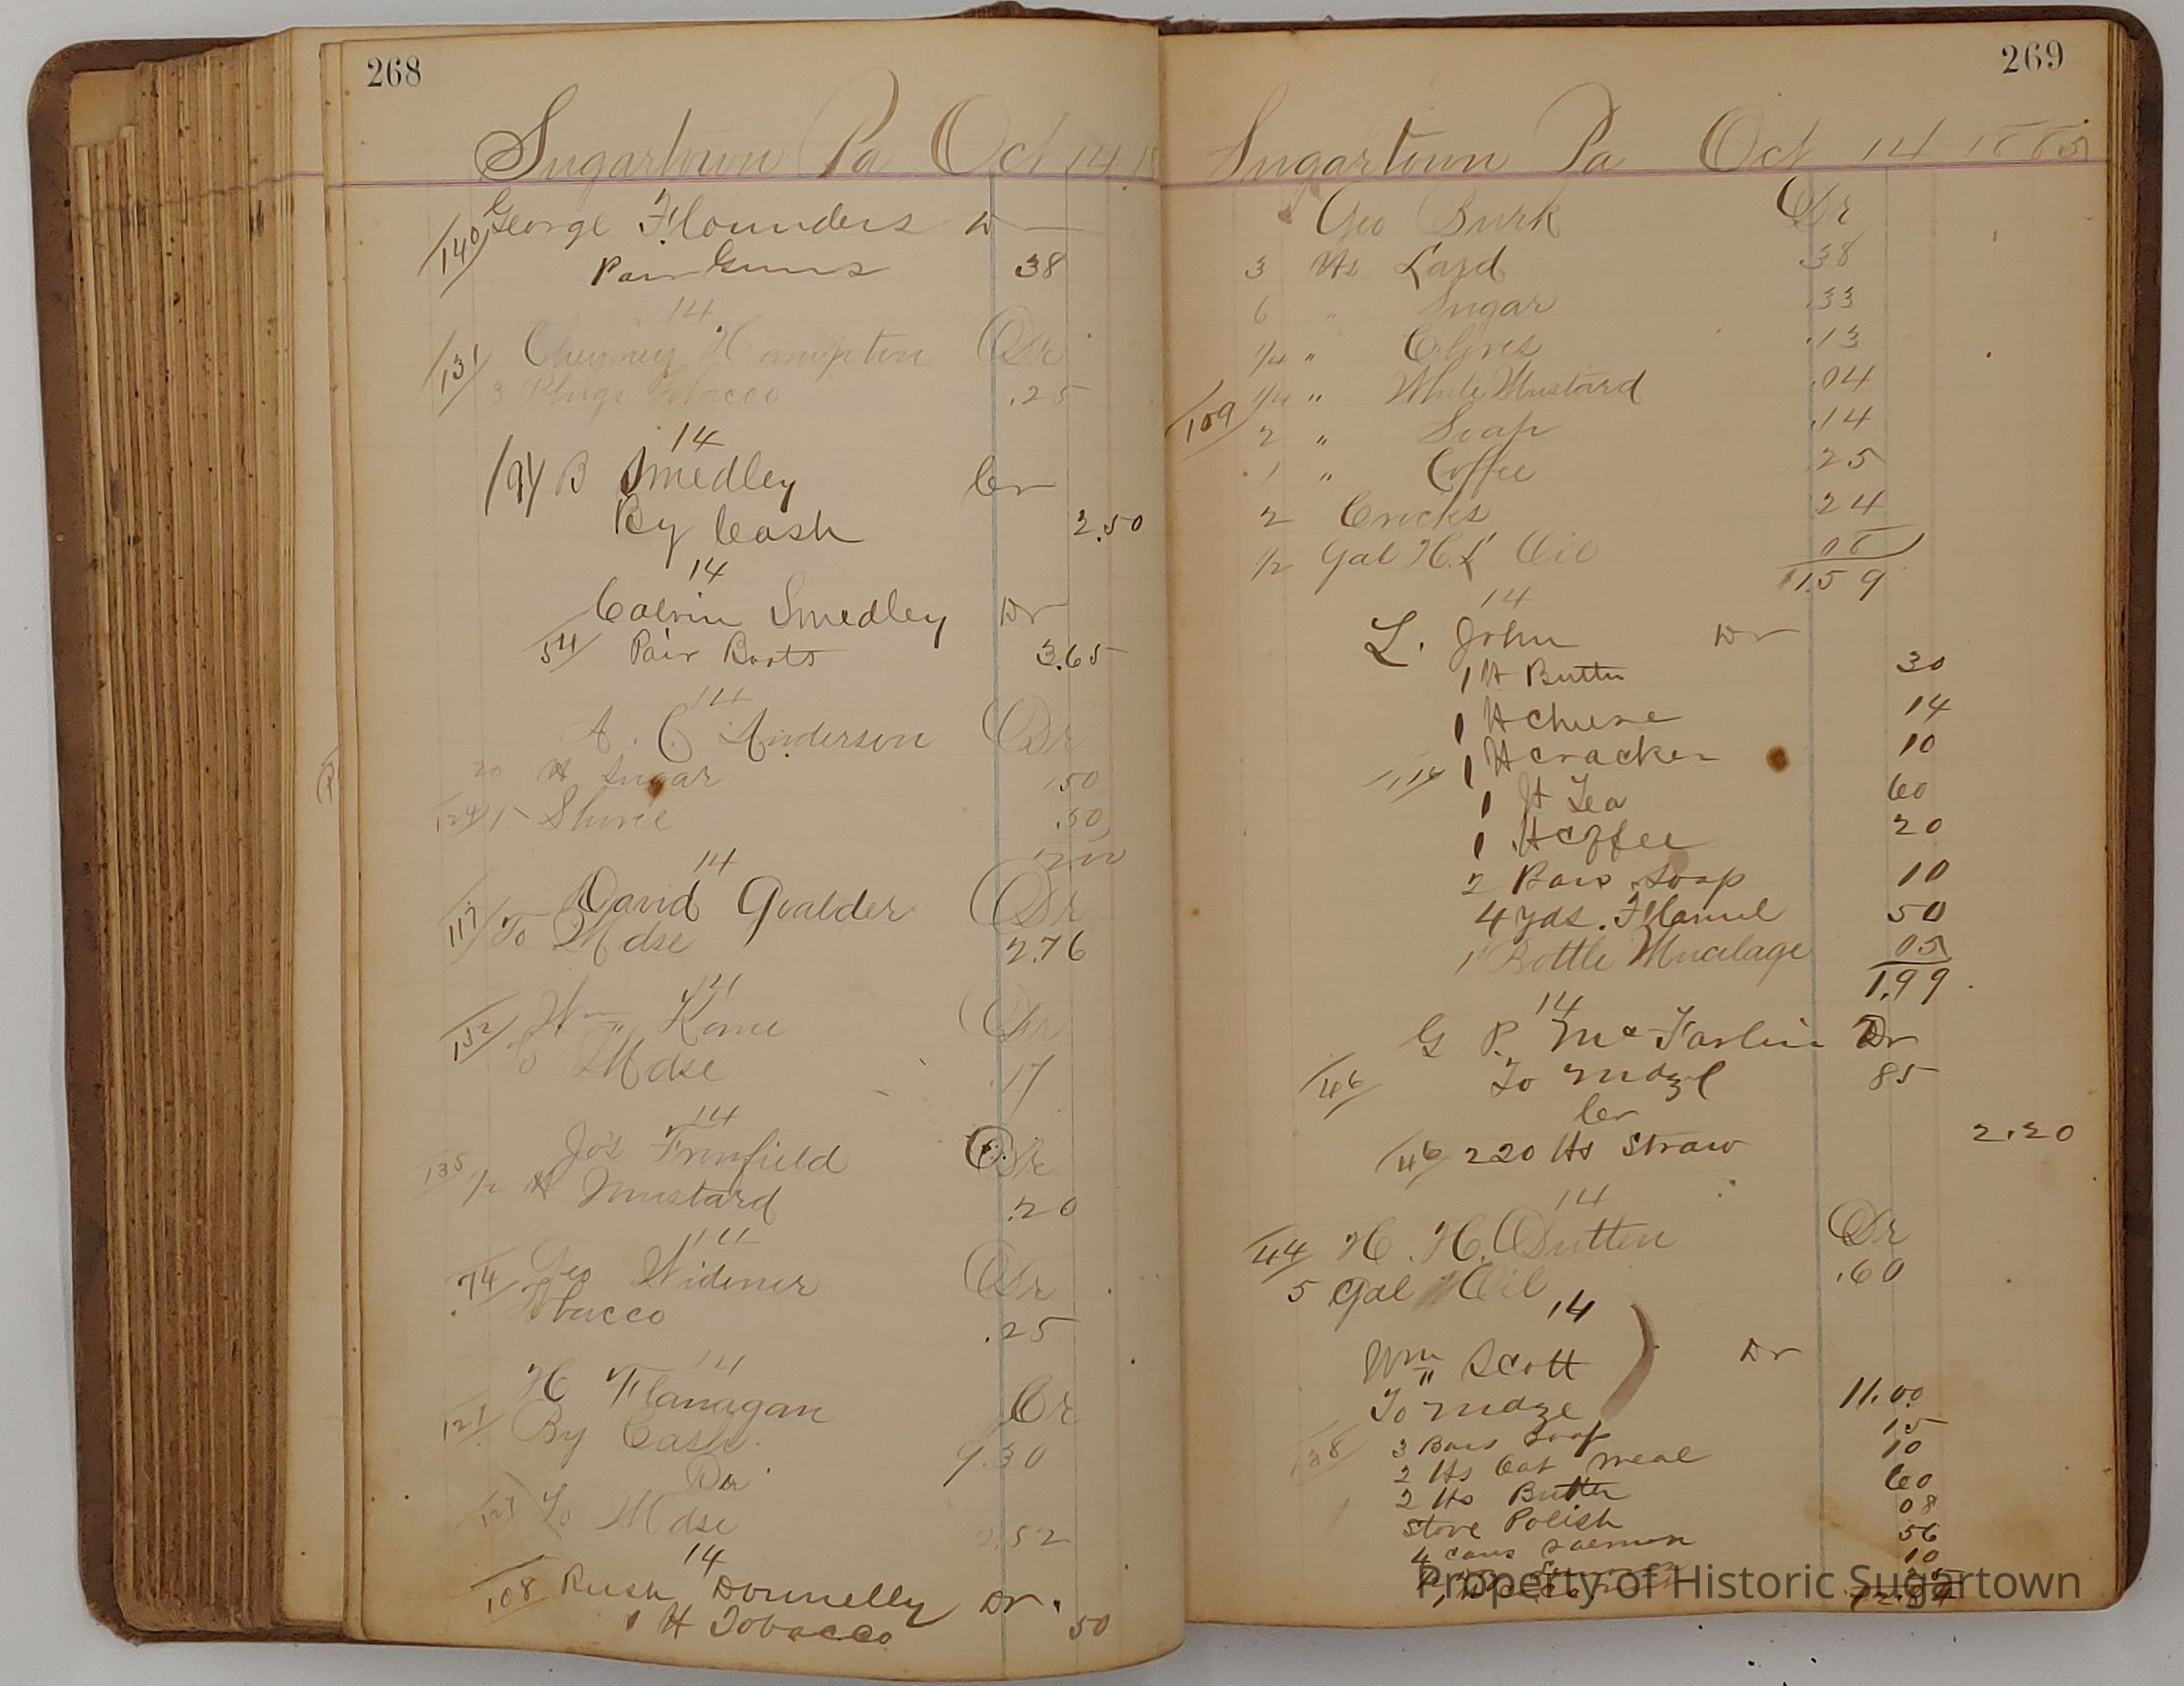 268
Sugartown Pa Oct 14 18
140 George Flounders Dr
Pair Gums 38
14
131 Cheyney Hampton Dr
3 Plugs Tobacco .25
14
194 B Smedley Cr
By Cash 2.50
14
Calvin Smedley Dr
54 Pair Boots 3.65
14
A. C. Anderson Dr
20 lb Sugar 1.50
124 1 Shovel .50
2.00
14
117 David Gualder Dr
To Mdse 2.76
14
132 Wm Kame Dr
To Mdse .17
14
Jos Fronfield Dr
135 1/2 lb Mustard .20
14
74 Geo Widener Dr
Tobacco .25
14
H Flanagan Cr
121 By Cash 9.30
Dr
121 To Mdse 2.52
14
108 Rush Donnelly Dr.
1 lb Tobacco 50
269
Sugartown Pa Oct 14 1885
Geo Burk Dr
3 lbs Lard 38
6 " Sugar .33
1/4 " Cloves .13
1/4 " White Mustard .04
109 2 " Soap .14
1 " Coffee 25
2 Crocks 24
1/2 Gal H.L Oil 08
1.59
14
L. John Dr
1 lb Butter 30
1 lb cheese 14
114 1 lb cracker 10
1 lb Tea 60
1 lb coffee 20
2 Bars Soap 10
4 yds. Flannel 50
1 Bottle Mucilage 05
1.99
14
G P. McFarlin Dr
46 To mdze 85
Cr
46 220 lbs Straw 2.20
14
44 H. H. Dutten Dr
5 Gal Oil .60
14
Wm Scott Dr
To mdze 11.00
138 3 Bars Soap 15
2 lbs Oat meal 10
2 lbs Butter 60
Stove Polish 08
4 cans salmon 56
10
Property of Historic Sugartown